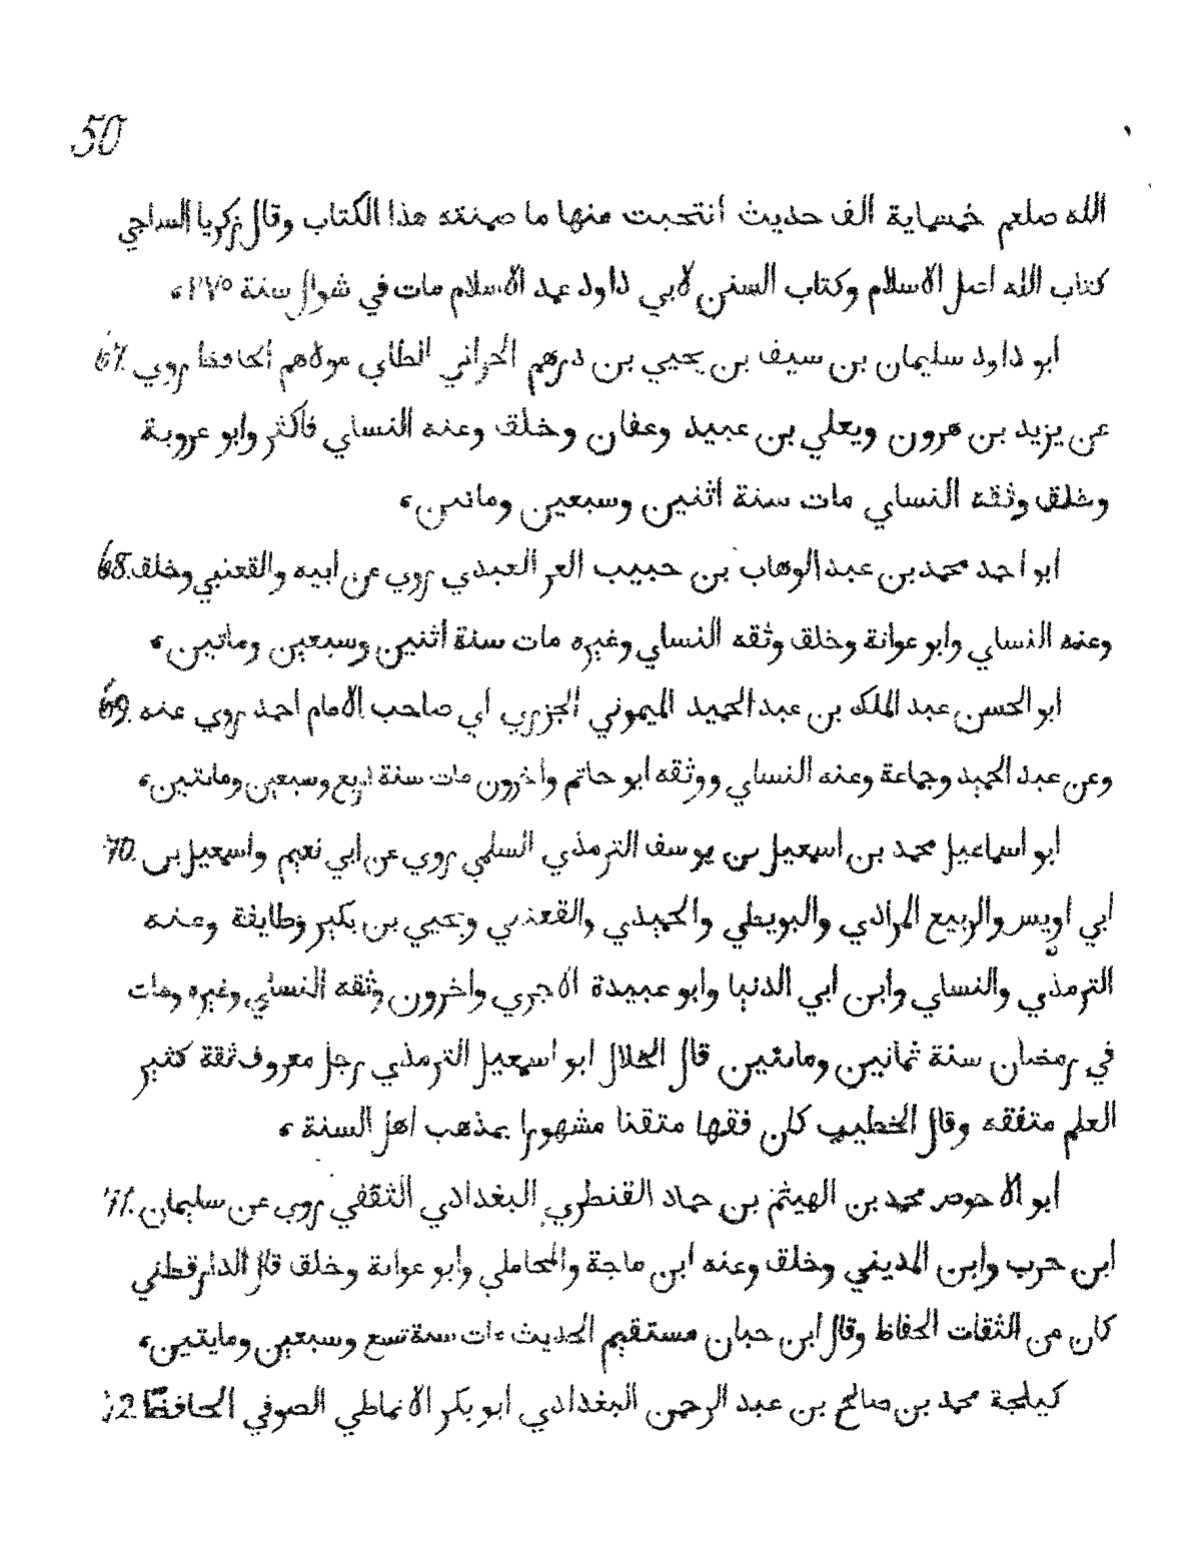 50
الله صلعم خمسماية الف حديث انتخبت منها ما ضمنته هذا الكتاب وقال زكريا الساجي
كتاب الله اصل الاسلام وكتاب السنن لابي داود عهد الاسلام مات في شوال سنة ٢٧٥،
ابو داود سليمان بن سيف بن يحيي بن درهم الحراني الطاي مولاهم الحافظ روي .67
عن يزيد بن هرون ويعلي بن عبيد وعفان وخلق وعنه النساي فاكثر وابو عروبة
وخلق وثقه النساي مات سنة اثنين وسبعين وماتين،
ابو احمد محمد بن عبد الوهاب بن حبيب العبدي روي عن ابيه والقعنبي وخلق .68
وعنه النساي وابو عوانة وخلق وثقه النساي وغيره مات سنة اثنين وسبعين وماتين،
ابو الحسن عبد الملك بن عبد الحميد الميموني الجزري اي صاحب الامام احمد روي عنه .69
وعن عبد الحميد وجماعة وعنه النساي ووثقه ابو حاتم واخرون مات سنة اربع وسبعين وماتين،
ابو اسماعيل محمد بن اسمعيل بن يوسف الترمذي السلمي روي عن ابي نعيم واسمعيل بن .70
ابي اويس والربيع المرادي والبويطي والحميدي والقعنبي ويحيي بن بكير وطايفة وعنه
الترمذي والنساي وابن ابي الدنيا وابو عبيدة الاجري واخرون وثقه النساي وغيره ومات
في رمضان سنة ثمانين وماتين قال الخلال ابو اسمعيل الترمذي رجل معروف ثقة كثير
العلم متفقه وقال الخطيب كان فقها متقنا مشهورا بمذهب اهل السنة ،
ابو الاحوص محمد بن الهيثم بن حماد القنطري البغدادي الثقفي روي عن سليمان .71
ابن حرب وابن المديني وخلق وعنه ابن ماجة والمحاملي وابو عوانة وخلق قال الدارقطني
كان من الثقات الحفاظ وقال ابن حبان مستقيم الحديث مات سنة تسع وسبعين ومايتين،
كيلجة محمد بن صالح بن عبد الرحمن البغدادي ابو بكر الانماطي الصوفي الحافظ .72